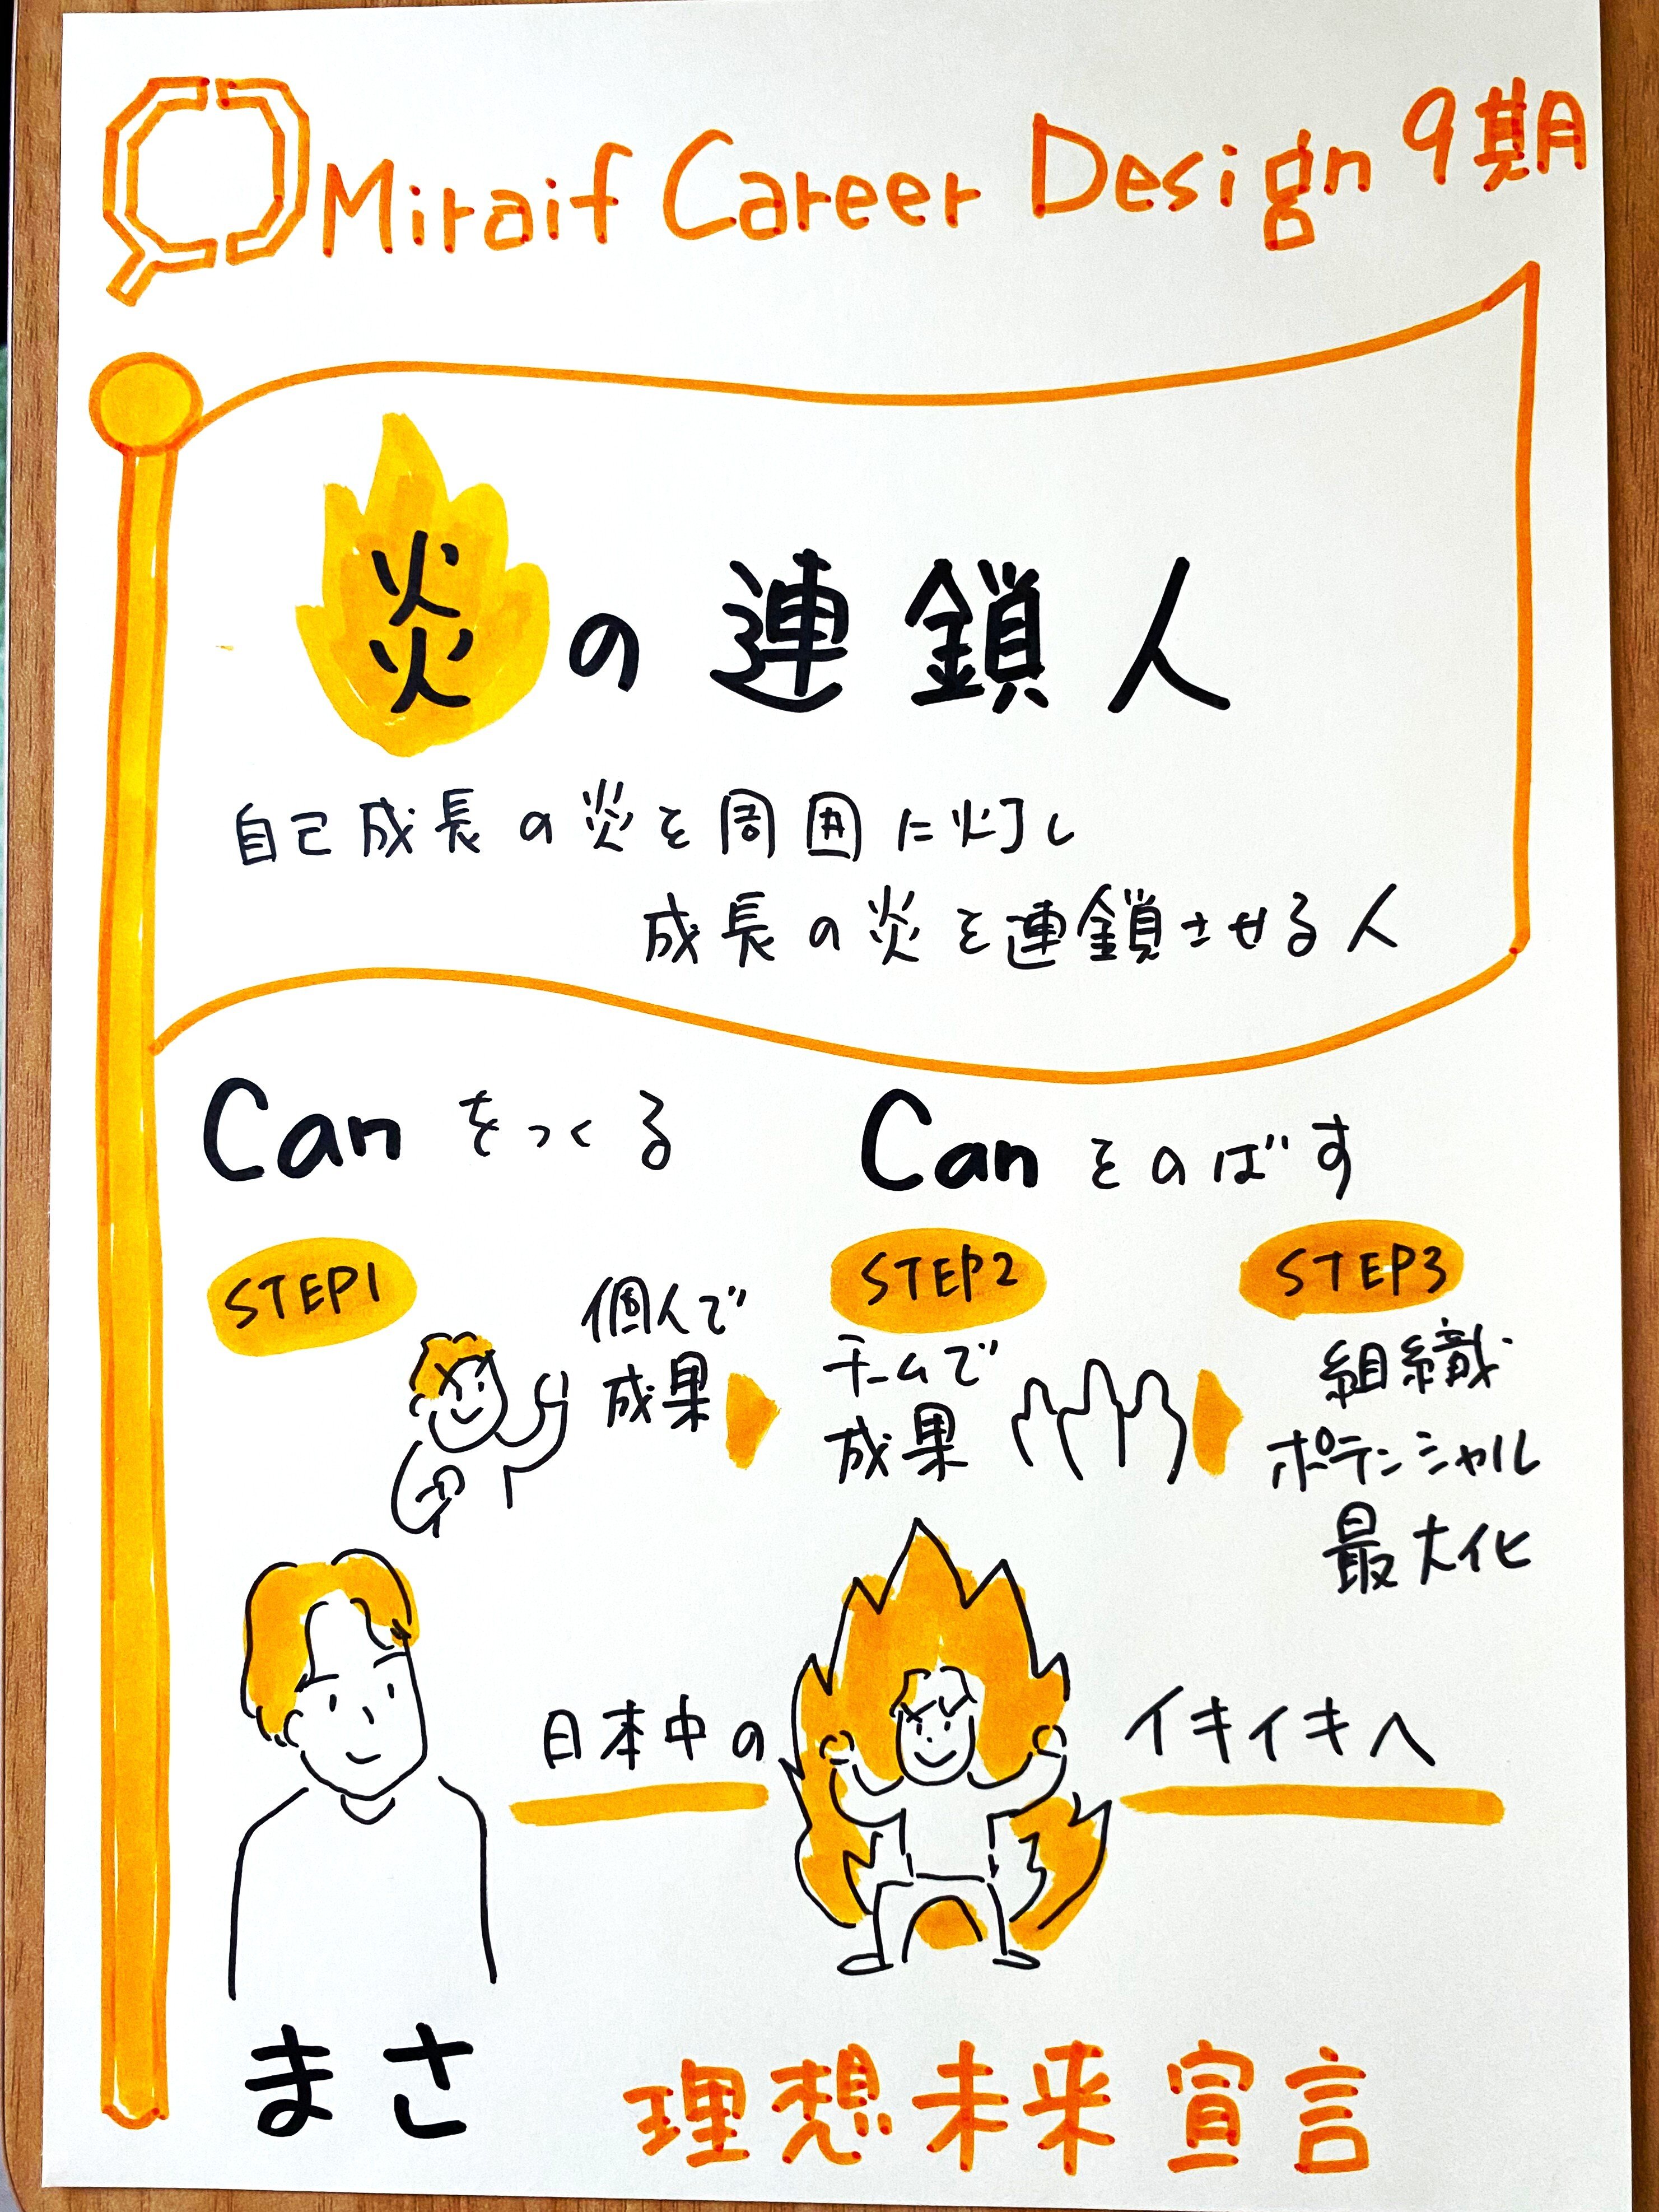 Miraif Career Design 9期
炎の連鎖人
自己成長の炎を周囲に灯し
成長の炎を連鎖させる人
Canをつくる
Canをのばす
STEP1
個人で
成果
STEP2
チームで
成果
STEP3
組織
ポテンシャル
最大化
日本中の
イキイキへ
まさ
理想未来宣言